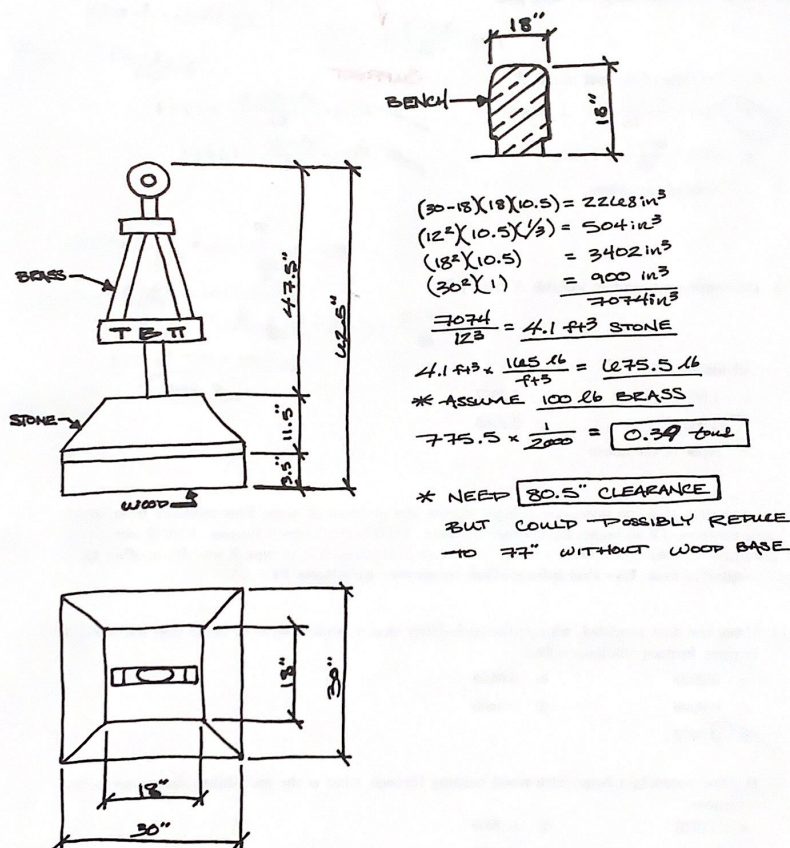 18"
BENCH
18"
BRASS
T B Π
STONE
WOOD
47.5"
62.5"
11.5"
3.5"
(30-18)(18)(10.5) = 2268 in³
(12²)(10.5)(⅓) = 504 in³
(18²)(10.5) = 3402 in³
(30²)(1) = 900 in³
7074 in³
7074/12³ = 4.1 ft³ STONE
4.1 ft³ × 165 lb/ft³ = 675.5 lb
* ASSUME 100 lb BRASS
775.5 × 1/2000 = 0.39 tons
* NEED 80.5" CLEARANCE
BUT COULD POSSIBLY REDUCE
TO 77" WITHOUT WOOD BASE
18"
30"
18"
30"